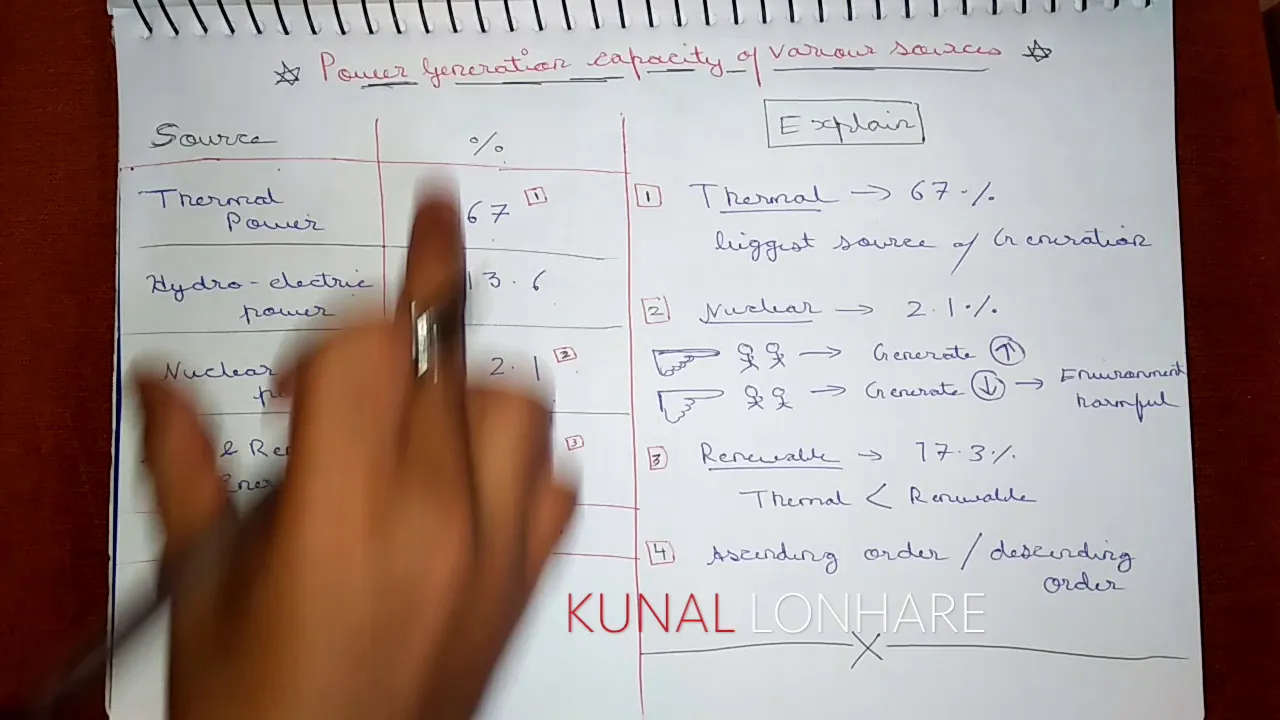 Power Generation capacity of various sources
Source
%
Thermal
Power
67
1
Hydro-electric
power
13.6
Nuclear
2.1
2
&
3
Explain
1 Thermal → 67%
biggest source of Generation
2 Nuclear → 2.1%
→ Generate ↑
→ Generate ↓ → Environment
harmful
3 Renewable → 17.3%
Thermal < Renewable
4 Ascending order / descending
order
KUNAL LONHARE